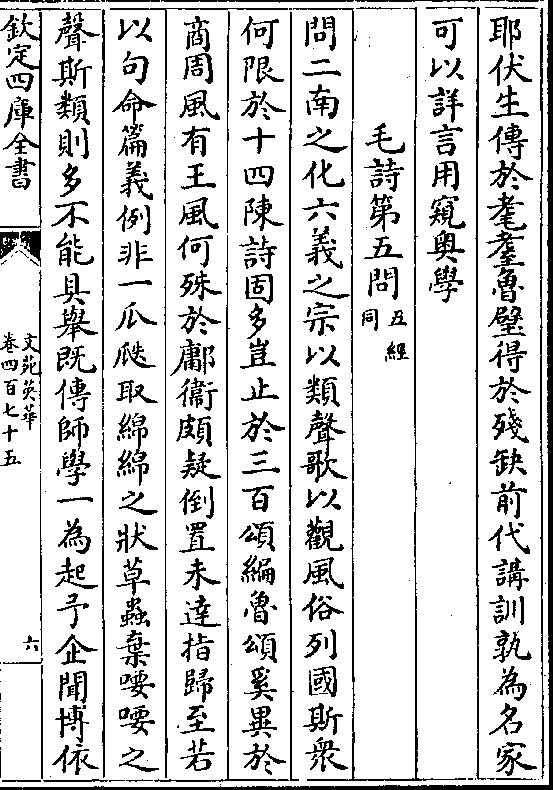 耶伏生傳於耄耋魯壁得於殘缺前代講訓孰為名家
可以詳言用窺奥學
毛詩第五問五經同
問二南之化六義之宗以類聲歌以觀風俗列國斯衆
何限於十四陳詩固多豈止於三百頌編魯頌奚異於
商周風有王風何殊於鄘衞頗疑倒置未達指歸至若
以句命篇義例非一瓜瓞取綿綿之狀草蟲棄喓喓之
聲斯類則多不能具舉既傳師學一為起予企聞博依
欽定四庫全書
文苑英華
卷四百七十五
六